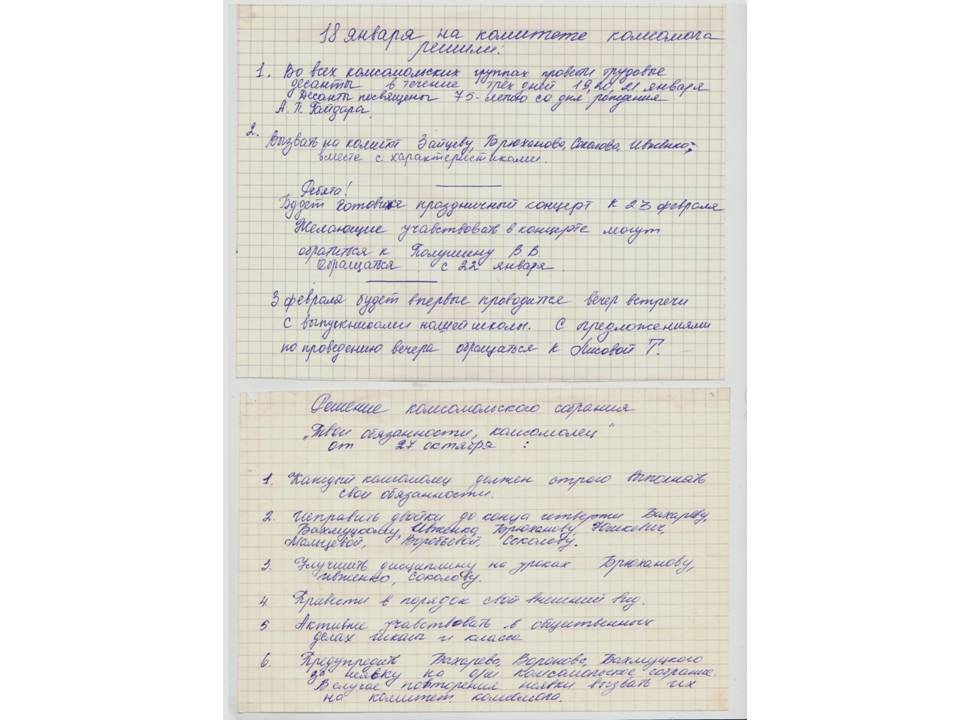 18 января на комитете комсомола
решили:
1. Во всех комсомольских группах провести трудовые
десанты в течение трёх дней 19, 20, 21 января
Десанты посвящены 75-летию со дня рождения
А. П. Гайдара.
2. Вызвать на комитет Зайцеву, Брюханова, Соколова, Ивженко,
вместе с характеристиками.
Ребята!
Будет готовится праздничный концерт к 23 февраля
Желающие учавствовать в концерте могут
обратиться к Полушину В. В.
Обращатся с 22 января.
3 февраля будет впервые проводится вечер встречи
с выпускниками нашей школы. С предложениями
по проведению вечера обращаться к Лисовой Т.
Решение комсомольского собрания
„Твои обязанности, комсомолец"
от 27 октября :
1. Каждый комсомолец должен строго выполнять
свои обязанности.
2. Исправить двойки до конца четверти Бахареву,
Вахмицкому, Ивженко, Брюханову,
Мальцевой, Воробьевой, Соколову.
3. Улучшить дисциплину на уроках Брюханову,
Ивженко, Соколову.
4. Привести в порядок свой внешний вид.
5. Активнее учавствовать в общественных
делах школы и класса
6. Предупредить Бахарева, Воронова, Вахмицкого
за неявку на комсомольское собрание.
В случае повторения неявки вызвать их
на комитет комсомола.